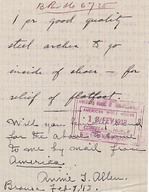 1 pr good quality
steel arches to go
inside of shoes — for
relief of flatfoot.
Will you
for the above
to me by mail from
America.
Annie T. Allen.
Brousa Feb. 7, '12.